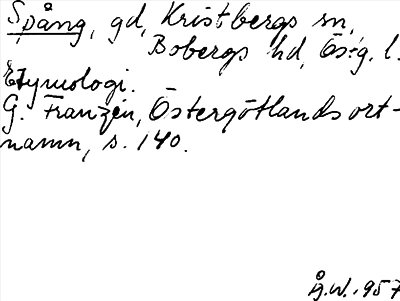 Spång, gd, Kristbergs sn,
Bobergs hd, Östg. l.
Etymologi.
G. Franzén, Östergötlands ort-
namn, s. 140.
Å.W. 1957